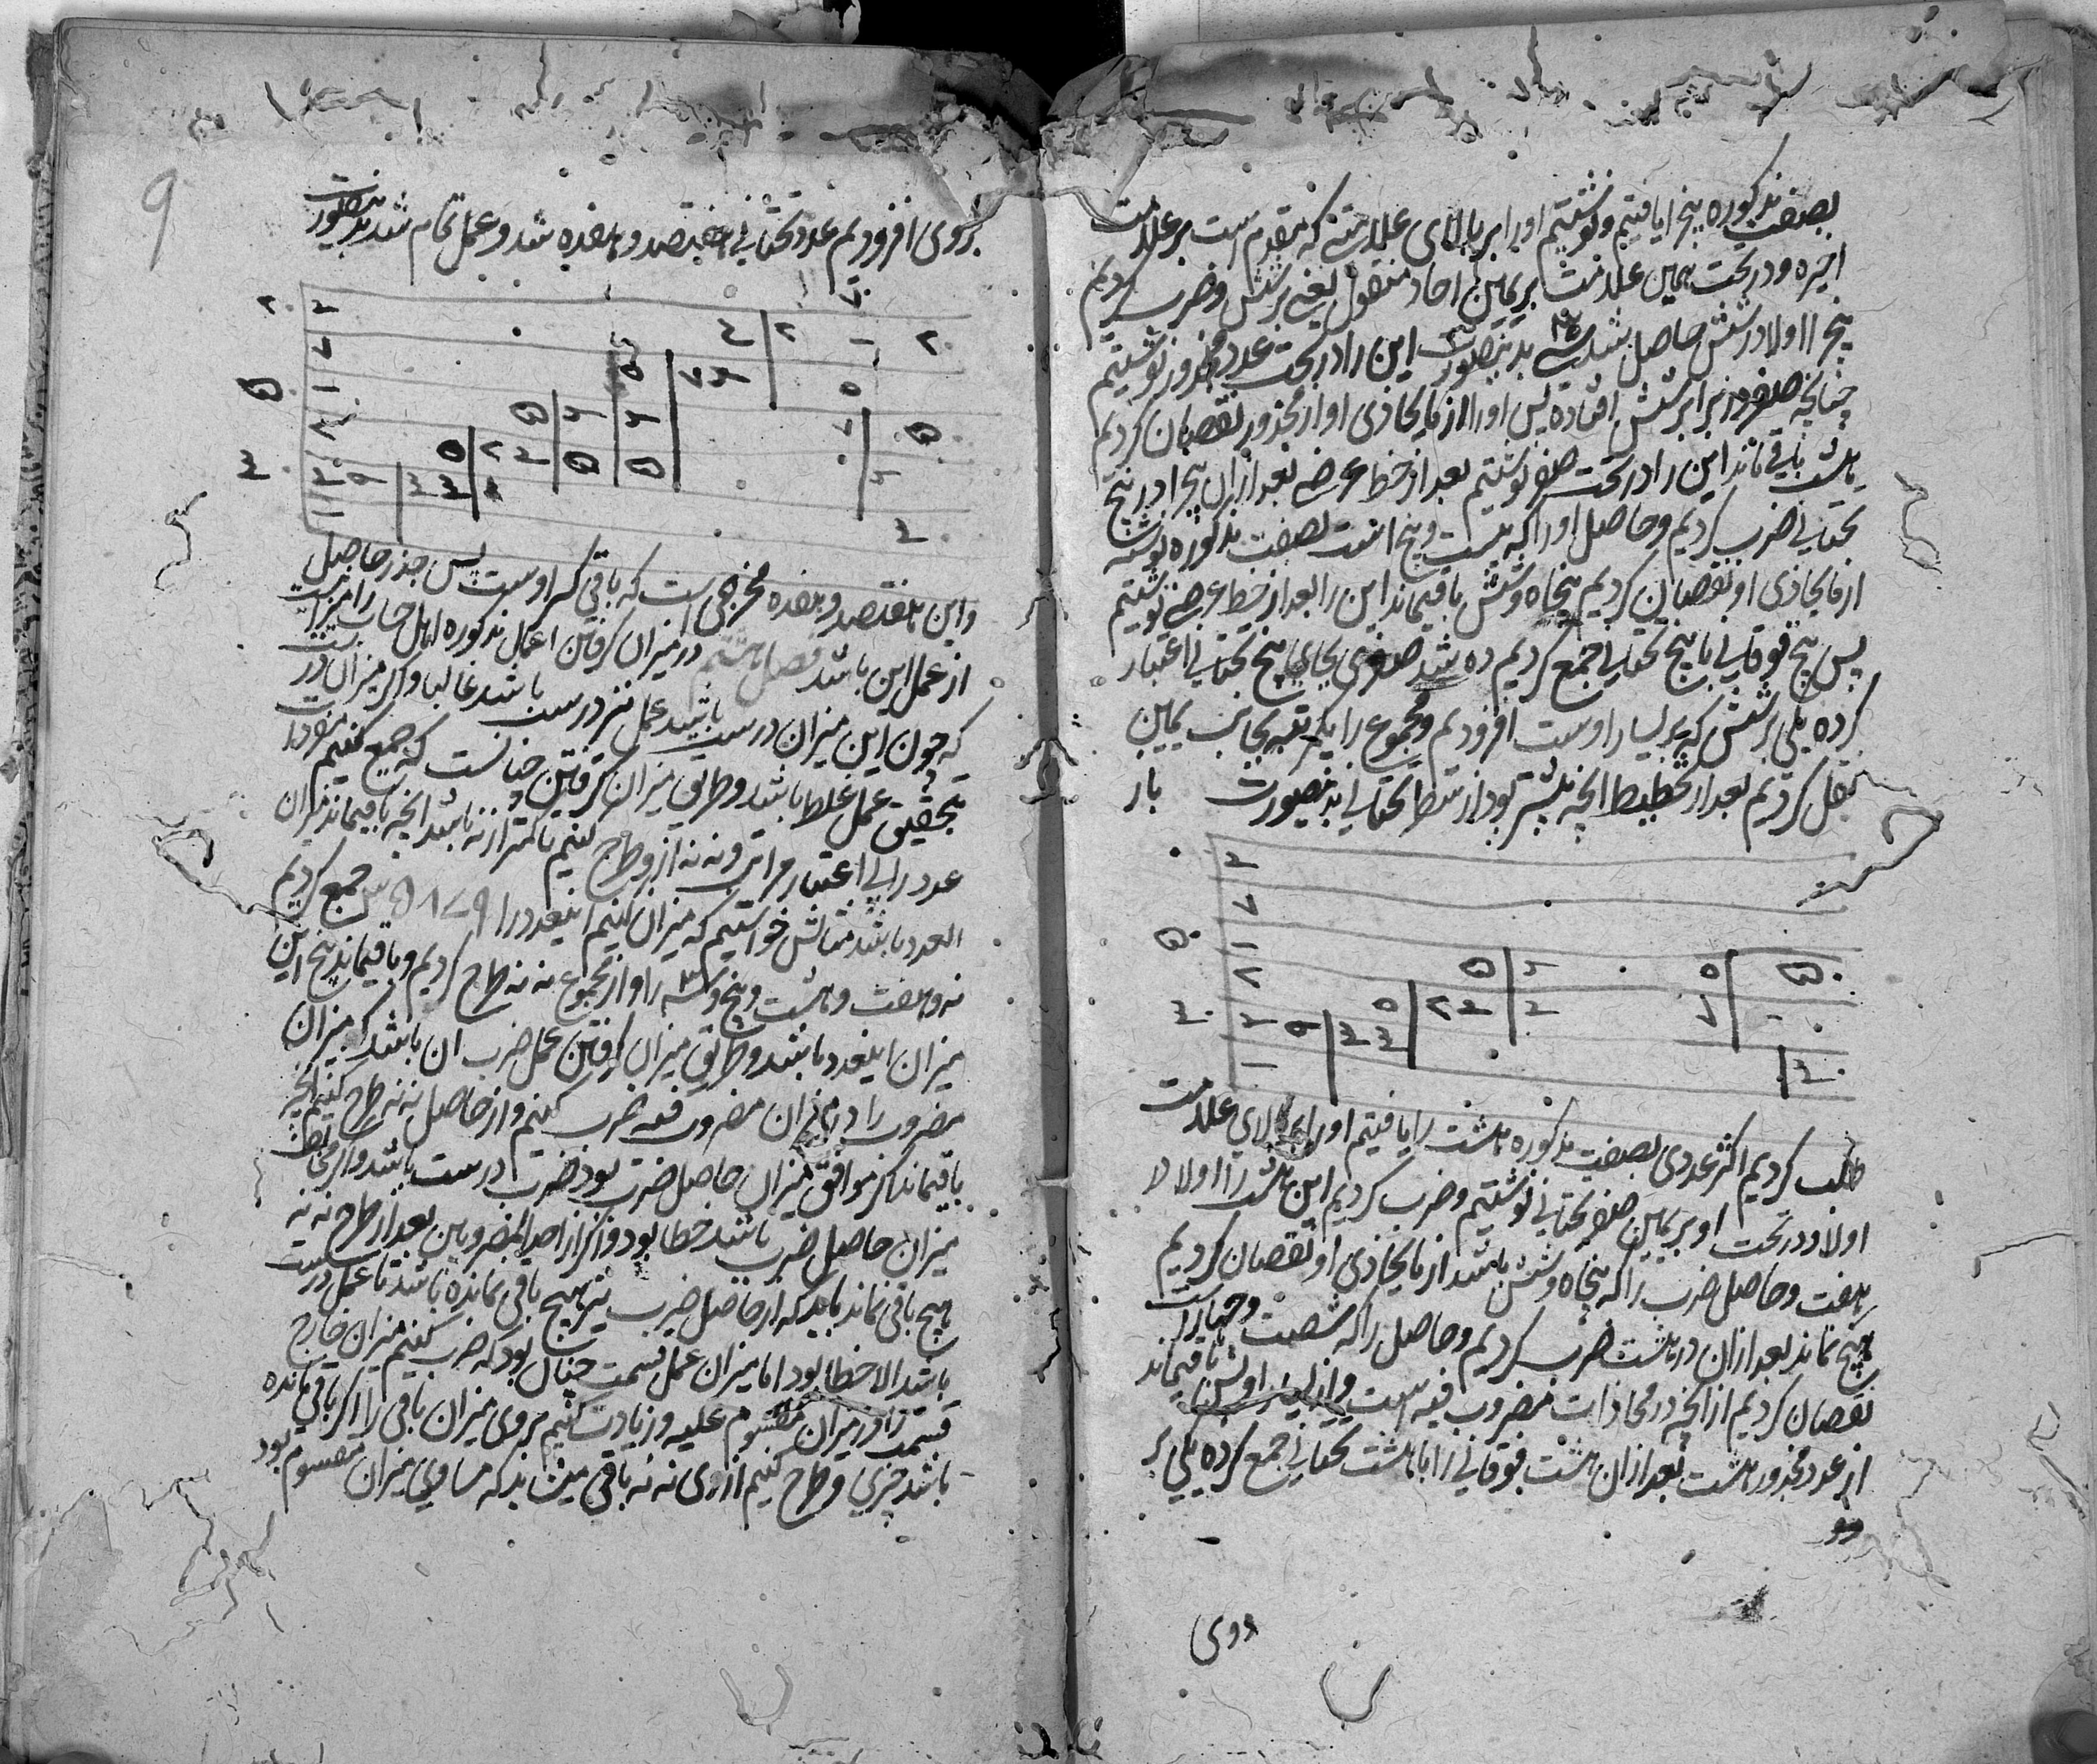 بصفت مذکوره پنج را یافتیم و نوشتیم او را بر بالای علامتی که مقدم است بر علامت
اخیره و در تحت همین علامت بر یمین احاد منقول یعنی بر شش و ضرب کردیم
پنج را اولا در شش حاصل شد سی ۳۰ بدینصورت این را در تحت عدد مجذور نوشتیم
چنانچه صفر در برابر شش افتاده پس او را از مایحاذی او از مجذور نقصان کردیم
هشت باقی ماند این را در تحت صفر نوشتیم بعد از خط عرضی بعد ازان پنج را در پنج
تحتانی ضرب کردیم و حاصل او را که بیست و پنج است بصفت مذکوره نوشته
از مایحاذی او نقصان کردیم پنجاه و شش باقیماند این را بعد از خط عرضی نوشتیم
پس پنج فوقانی با پنج تحتانی جمع کردیم ده شد صفری بجای پنج تحتانی اعتبار
کرده یکی بر شش که بر یسار اوست افزودیم و مجموع را یکمرتبه بجانب یمین
نقل کردیم بعد از تخطیط انچه بیشتر بود از سطر تحتانی بدینصورت باز
طلب کردیم اکثر عددی بصفت مذکوره هشت را یافتیم او را بر بالای علامت
اولا و در تحت او بر یمین صفر تحتانی نوشتیم و ضرب کردیم این هشت را اولا در
هفت و حاصل ضرب را که پنجاه و شش باشد از مایحاذی او نقصان کردیم
هیچ نماند بعد ازان در هشت ضرب کردیم و حاصل را که شصت و چهار است
نقصان کردیم از انچه در محاذات مضروب فیه است و از یسار او پس باقیماند
از عدد مجذور هشت بعد ازان هشت فوقانی را با هشت تحتانی جمع کرده یکی بر
روی
بروی افزودیم عدد تحتانی هفتصد و هفده شد و عمل تمام شد بدینصورت
و این هفتصد و هفده مخرجی است که باقی کسر اوست پس جذر حاصل
از عمل این باشد فصل هشتم در میزان گرفتن اعمال مذکوره اهل حساب را میزانیست
که چون این میزان درست باشد عمل نیز درست باشد غالبا و اگر میزان درست
بتحقیق عمل غلط باشد و طریق میزان گرفتن چنانست که جمع کنیم مفردات
عدد را بی اعتبار مراتب و نه نه ازو طرح کنیم تا کمتر از نه باشد انچه باقیماند میزان
العدد باشد مثالش خواستیم که میزان کنیم اینعدد را ۹۷۸۵۳ پس جمع کردیم
نه و هفت و هشت و پنج و سه را و از مجموع نه نه طرح کردیم و باقیماند پنج این
میزان اینعدد باشد و طریق میزان گرفتن عمل ضرب ان باشد که میزان
مضروب را در میزان مضروب فیه ضرب کنیم و از حاصل نه نه طرح کنیم انچه
باقیماند اگر موافق میزان حاصل ضرب بود ضرب درست باشد و اگر مخالف
میزان حاصل ضرب باشد خطا بود و اگر از احد المضروبین بعد از طرح نه نه
هیچ باقی نماند باید که از حاصل ضرب نیز هیچ باقی نمانده باشد تا عمل درست
باشد الا خطا بود اما میزان عمل قسمت چنان بود که ضرب کنیم میزان خارج
قسمت را در میزان مقسوم علیه و زیادت کنیم بروی میزان باقی را اگر باقی مانده
باشد چیزی و طرح کنیم از وی نه نه باقی میباید که مساوی میزان مقسوم بود